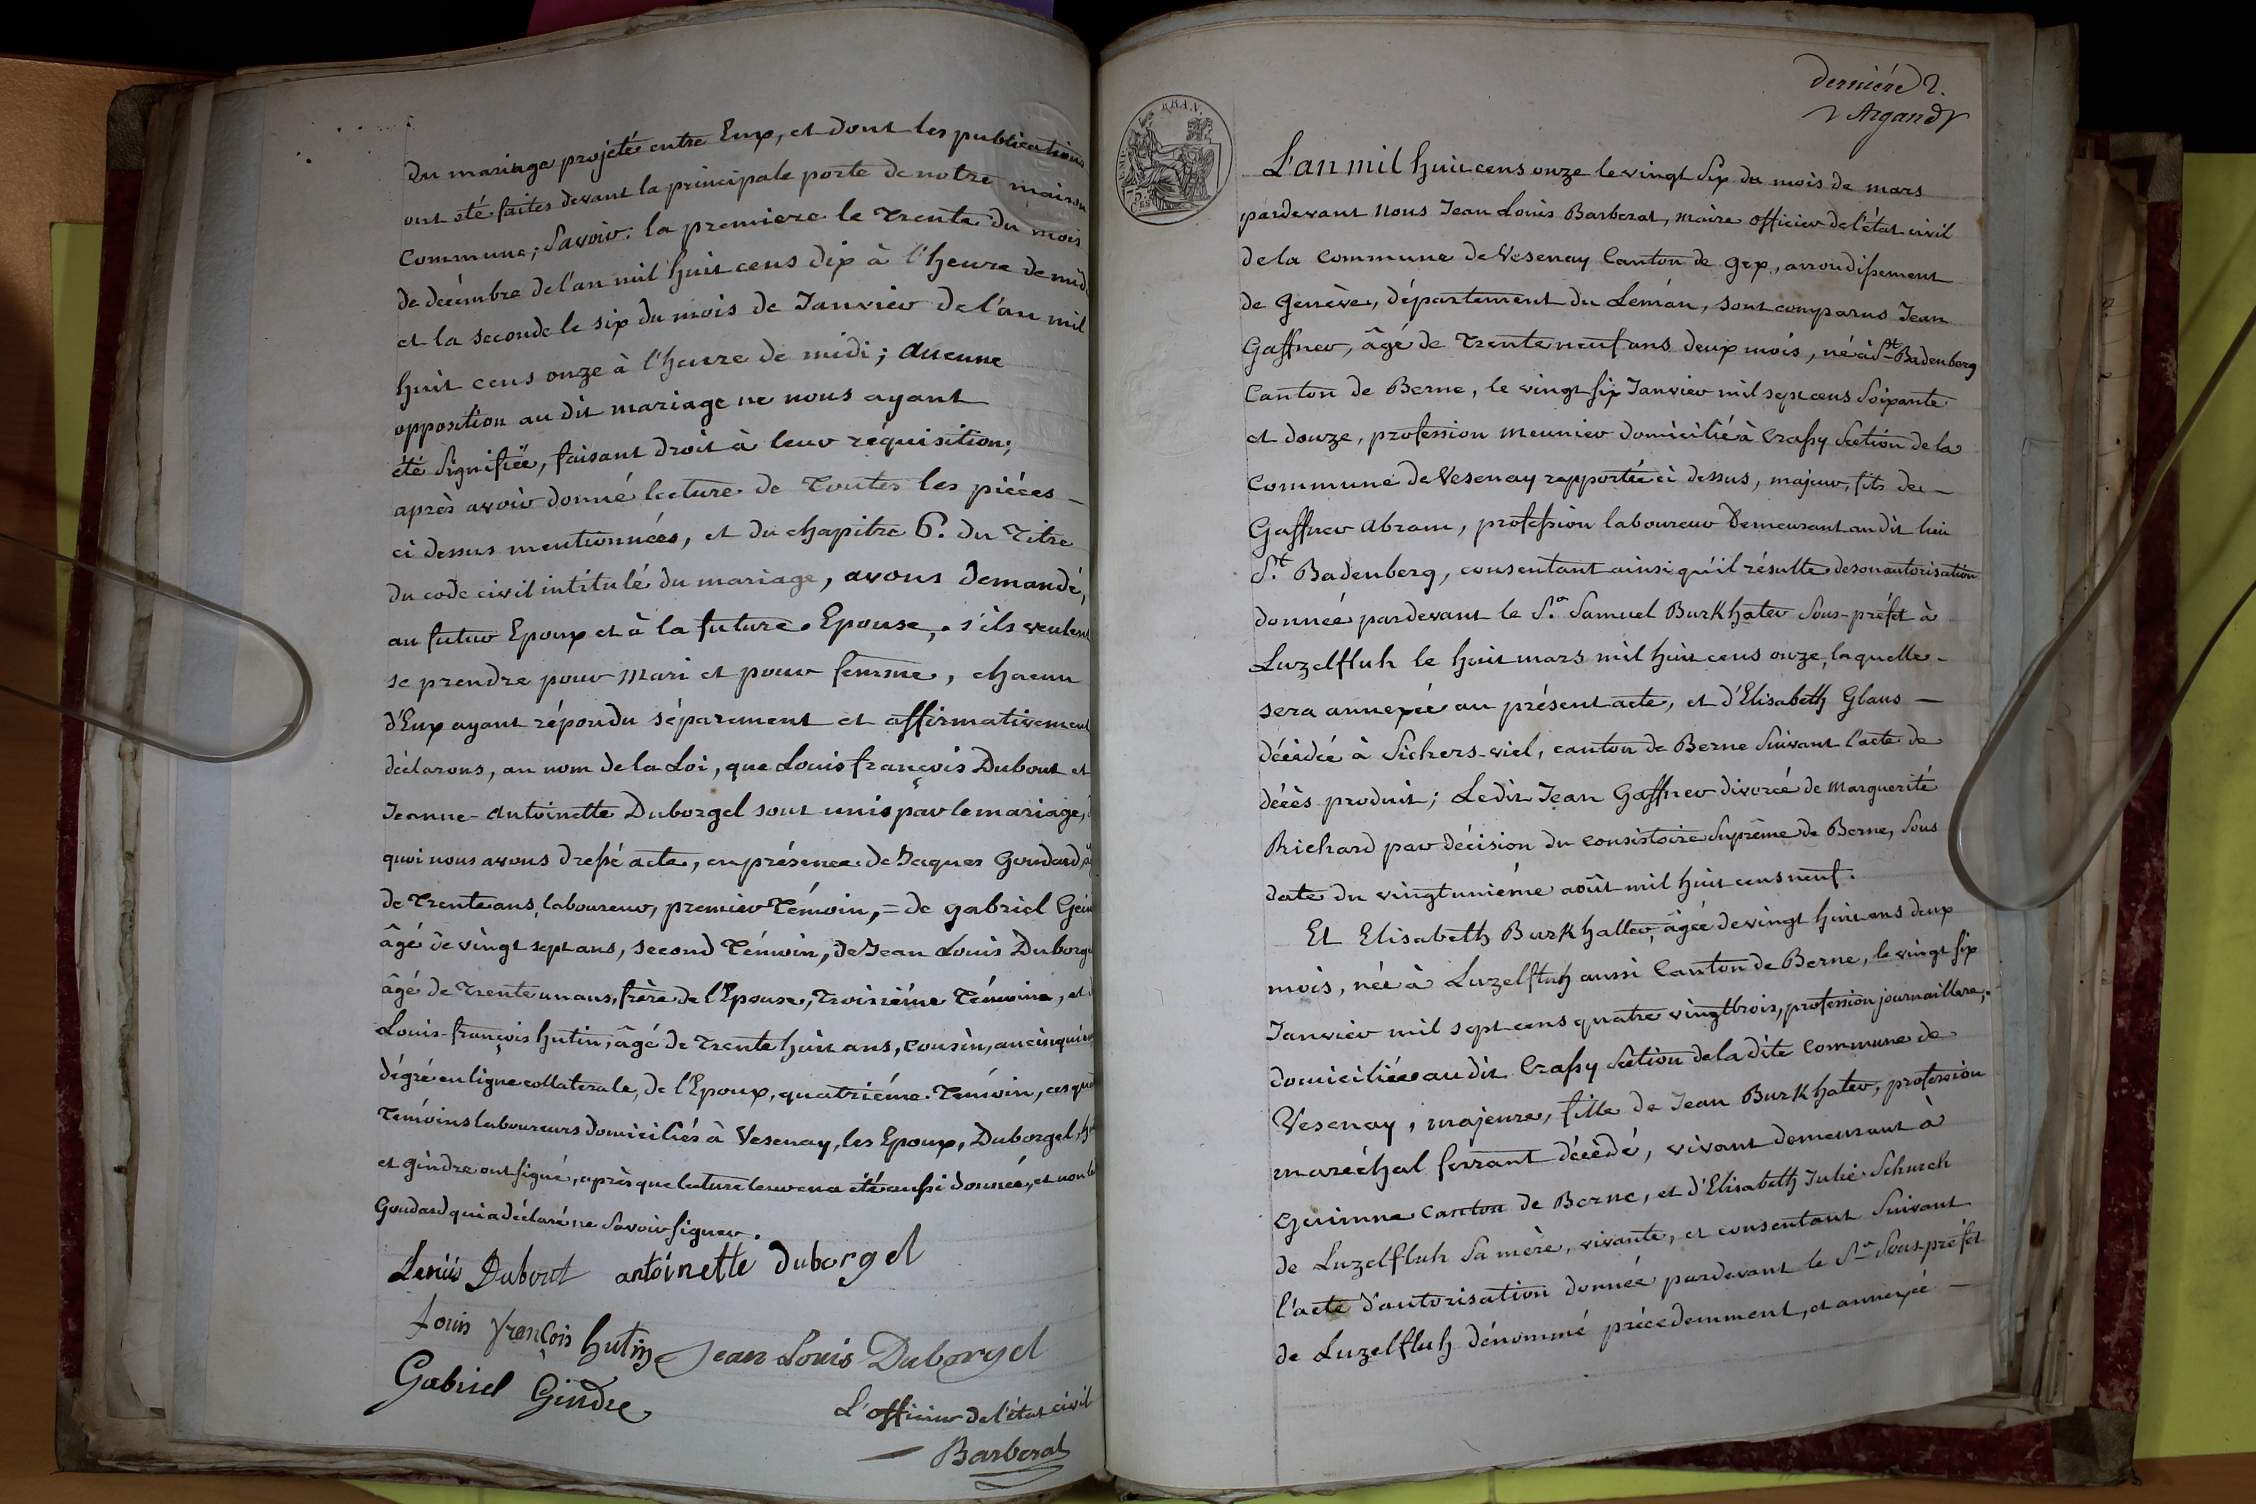 du mariage projeté entre Eux, et dont les publications
ont été faites devant la principale porte de notre maison
Commune; Savoir: la premiere le Trente du mois
de décémbre de l'an mil huit cens dix à l'heure de midi
et la seconde le six du mois de Janvier de l'an mil
huit cens onze à l'heure de midi; Aucune
opposition au dit mariage ne nous ayant
été Signifiée, faisant droit à leur réquisition;
après avoir donné lecture de Toutes les piéces –
ci dessus mentionnées, et du chapitre 6. du Titre
du code civil intitulé du mariage, avons demandé,
au futur Epoux et à la future Epouse, s'ils veulent
se prendre pour Mari et pour femme, chacun
d'Eux ayant répondu séparement et affirmativement
déclarons, au nom de la Loi, que Louis françois Dubout et
Jeanne-Antoinette Duborgel sont unis par le mariage,
quoi nous avons dressé acte, en présence de Jaques Goudard
de Trente ans, laboureur, premier Témoin, = de gabriel
âgé de vingt sept ans, second Témoin, de Jean Louis Duborgel
âgé de Trente un ans, frère de l'Epouse, Troisiéme Témoine, et
Louis-françois hutin, âgé de Trente huit ans, cousin, au cinquiéme
dégré en ligne collaterale, de l'Epoux, quatriéme Témoin, ces
Temoins laboureurs domiciliés à Vesenay, les Epoux, Duborgel,
et gindre ont signé, après que lecture leur en a été aussi donnée, et non le
Goudard qui a déclaré ne Savoir signer.
Louis Dubout antoinette duborgel
Louis françois hutin Jean Louis Duborgel
Gabriel Gindre
L'officier de l'état civil
Barberat
derniére 2.
Argand
L'an mil huit cens onze le vingt Six du mois de mars
pardevant Nous Jean Louis Barberat, maire officier de l'état civil
de la Commune de Vesenay Canton de gex, arrondissement
de Genève, département du Leman, sont comparus Jean
Gaffner, âgé de Trente neuf ans deux mois, né à St. Badenberg
Canton de Berne, le vingt six Janvier mil sept cens Soixante
et douze, profession meunier domicilié à Crassy Section de la
Commune de Vesenay rapportée ci dessus, majeur, fils de –
Gaffner Abram, profession laboureur Demeurant au dit lieu
St. Badenberg, consentant ainsi qu'il résulte de son autorisation
donnée pardevant le Sr. Samuel Burkhater Sous-préfet à
Luzelfluh le huit mars mil huit cens onze, laquelle –
sera annexée au présent acte, et d'Elisabeth Glaus –
décédée à Sichers-wiel, canton de Berne Suivant l'acte de
décès produit; Ledit Jean Gaffner divorcé de Marguerité
Richard par décision du consistoire Suprême de Berne, Sous
date du vingtuniéme août mil huit cens neuf.
Et Elisabeth Burkhalter, âgée de vingt huit ans deux
mois, née à Luzelfluh aussi Canton de Berne, le vingt six
Janvier mil sept cens quatre vingt trois, profession journaillere,
domiciliée au dit Crassy Section de la dite Commune de
Vesenay, majeure, fille de Jean Burkhater, profession
maréchal ferrant décédé, vivant demeurant à
Canton de Berne, et d'Elisabeth Julie Schurch
de Luzelfluh Sa mère, vivante, et consentant Suivant
l'acte d'autorisation donnée pardevant le Sr. Sous-préfet
de Luzelfluh dénommé précedemment, et annexée –